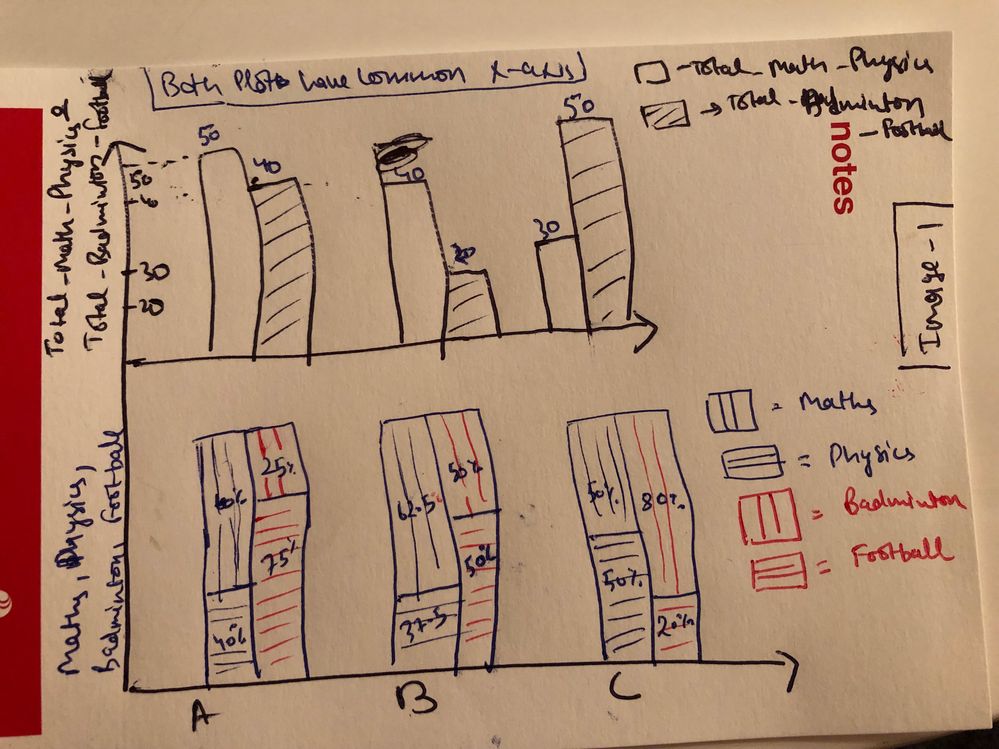 Both Plots have common X-axis
- Total - Math - Physics
→ Total - Badminton
- Football
notes
Image - 1
Total - Math - Physics &
Total - Badminton - Football
50
30
20
50
40
40
20
30
50
Maths, Physics,
Badminton, Football
60%
40%
25%
75%
62.5%
37.5
50%
50%
50%
50%
80%
20%
= Maths
= Physics
= Badminton
= Football
A B C